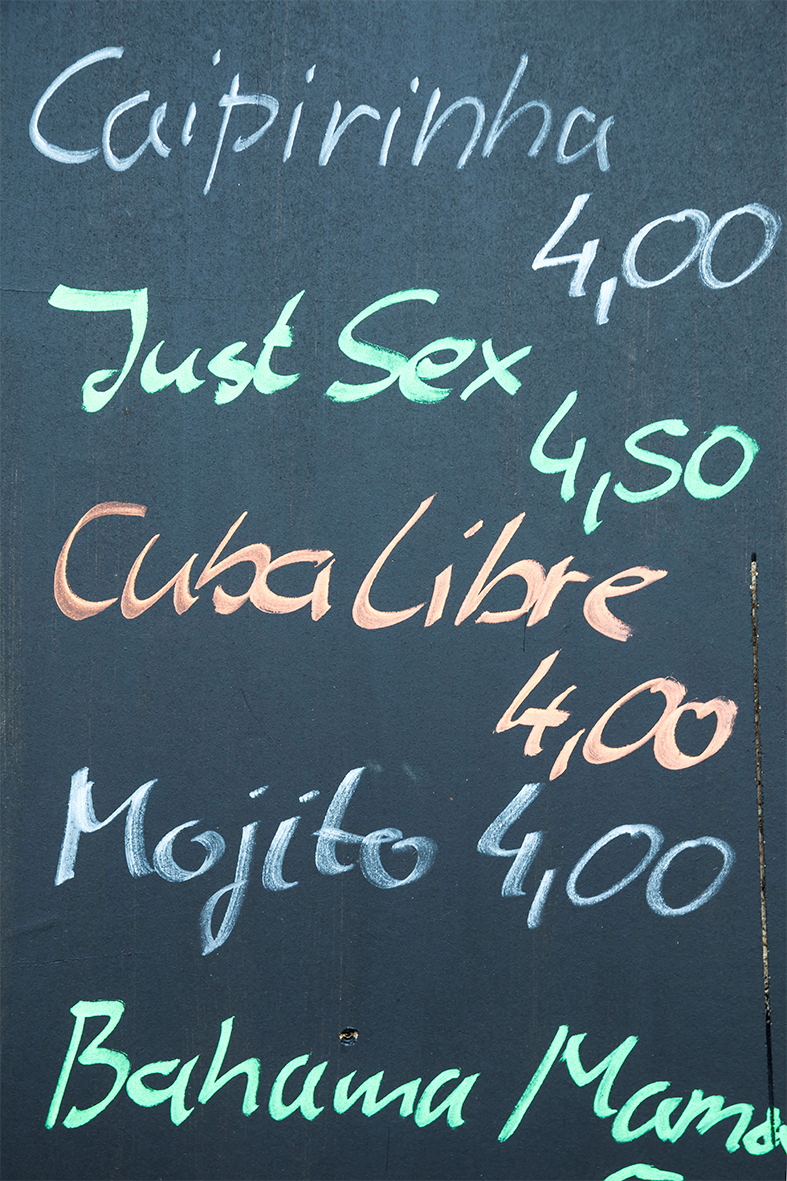 Caipirinha
4,00
Just Sex
4,50
Cuba Libre
4,00
Mojito 4,00
Bahama Mama